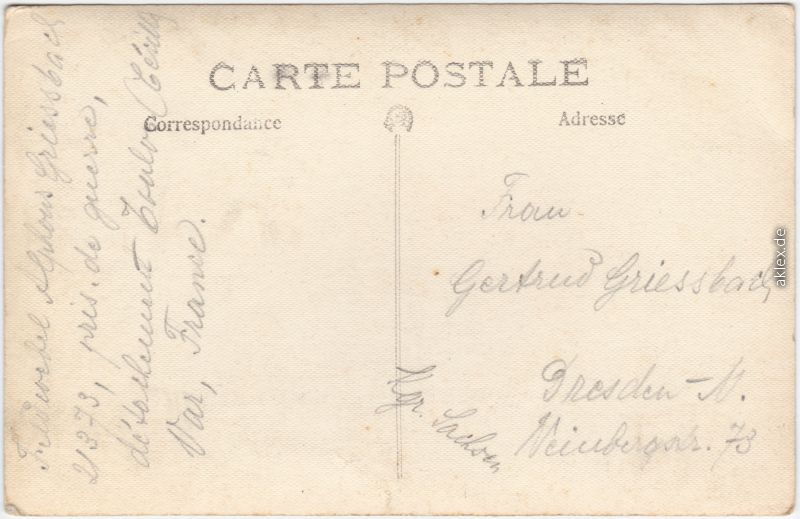 CARTE POSTALE
Correspondance
Adresse
Feldwebel Alphons Griessbach
21373, pris. de guerre,
détachement Toulon
Var, France.
Frau
Gertrud Griessbach
Dresden-N.
Weinbergstr. 73
Kgr. Sachsen
aklex.de